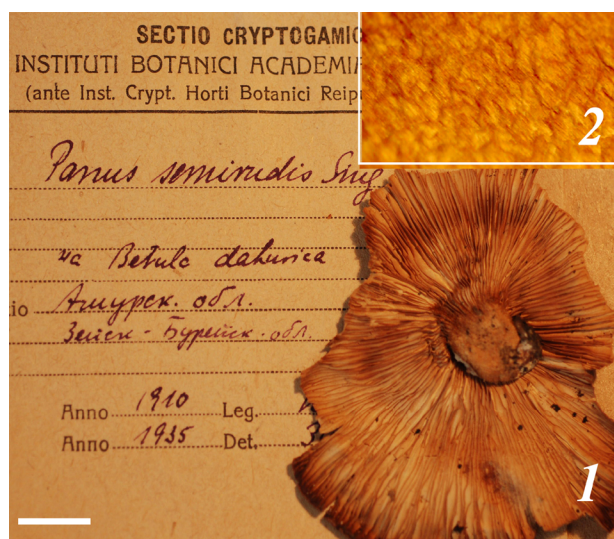 SECTIO CRYPTOGAMIC
INSTITUTI BOTANICI ACADEMIA
(ante Inst. Crypt. Horti Botanici Reip
Panus semirudis Sing
на Betula dahurica
io Амурск. обл.
Зейск-Буреинск. обл.
Anno 1910 Leg.
Anno 1935 Det.
2
1